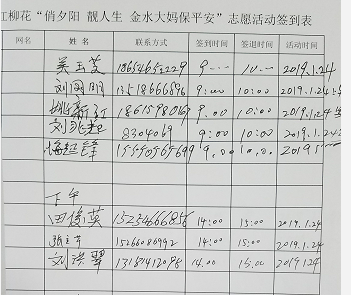 江柳花“俏夕阳 靓人生 金水大妈保平安”志愿活动签到表
网名 姓 名 联系方式 签到时间 签退时间 活动时间
吴玉芝 18654652229 9:00 10:00 2019.1.24
刘 13518666896 9:00 10:00 2019.1.24
姚新红 18615980169 9:00 10:00 2019.1.24
刘 8304069 9:00 10:00 2019.1.24
梅 锋 9:00 10:00 2019
下午
田俊英 15234666856 14:00 15:00 2019.1.24
张 15266086992 14:00 15:00 2019.1.24
刘洪翠 13181412098 14:00 15:00 2019.1.24